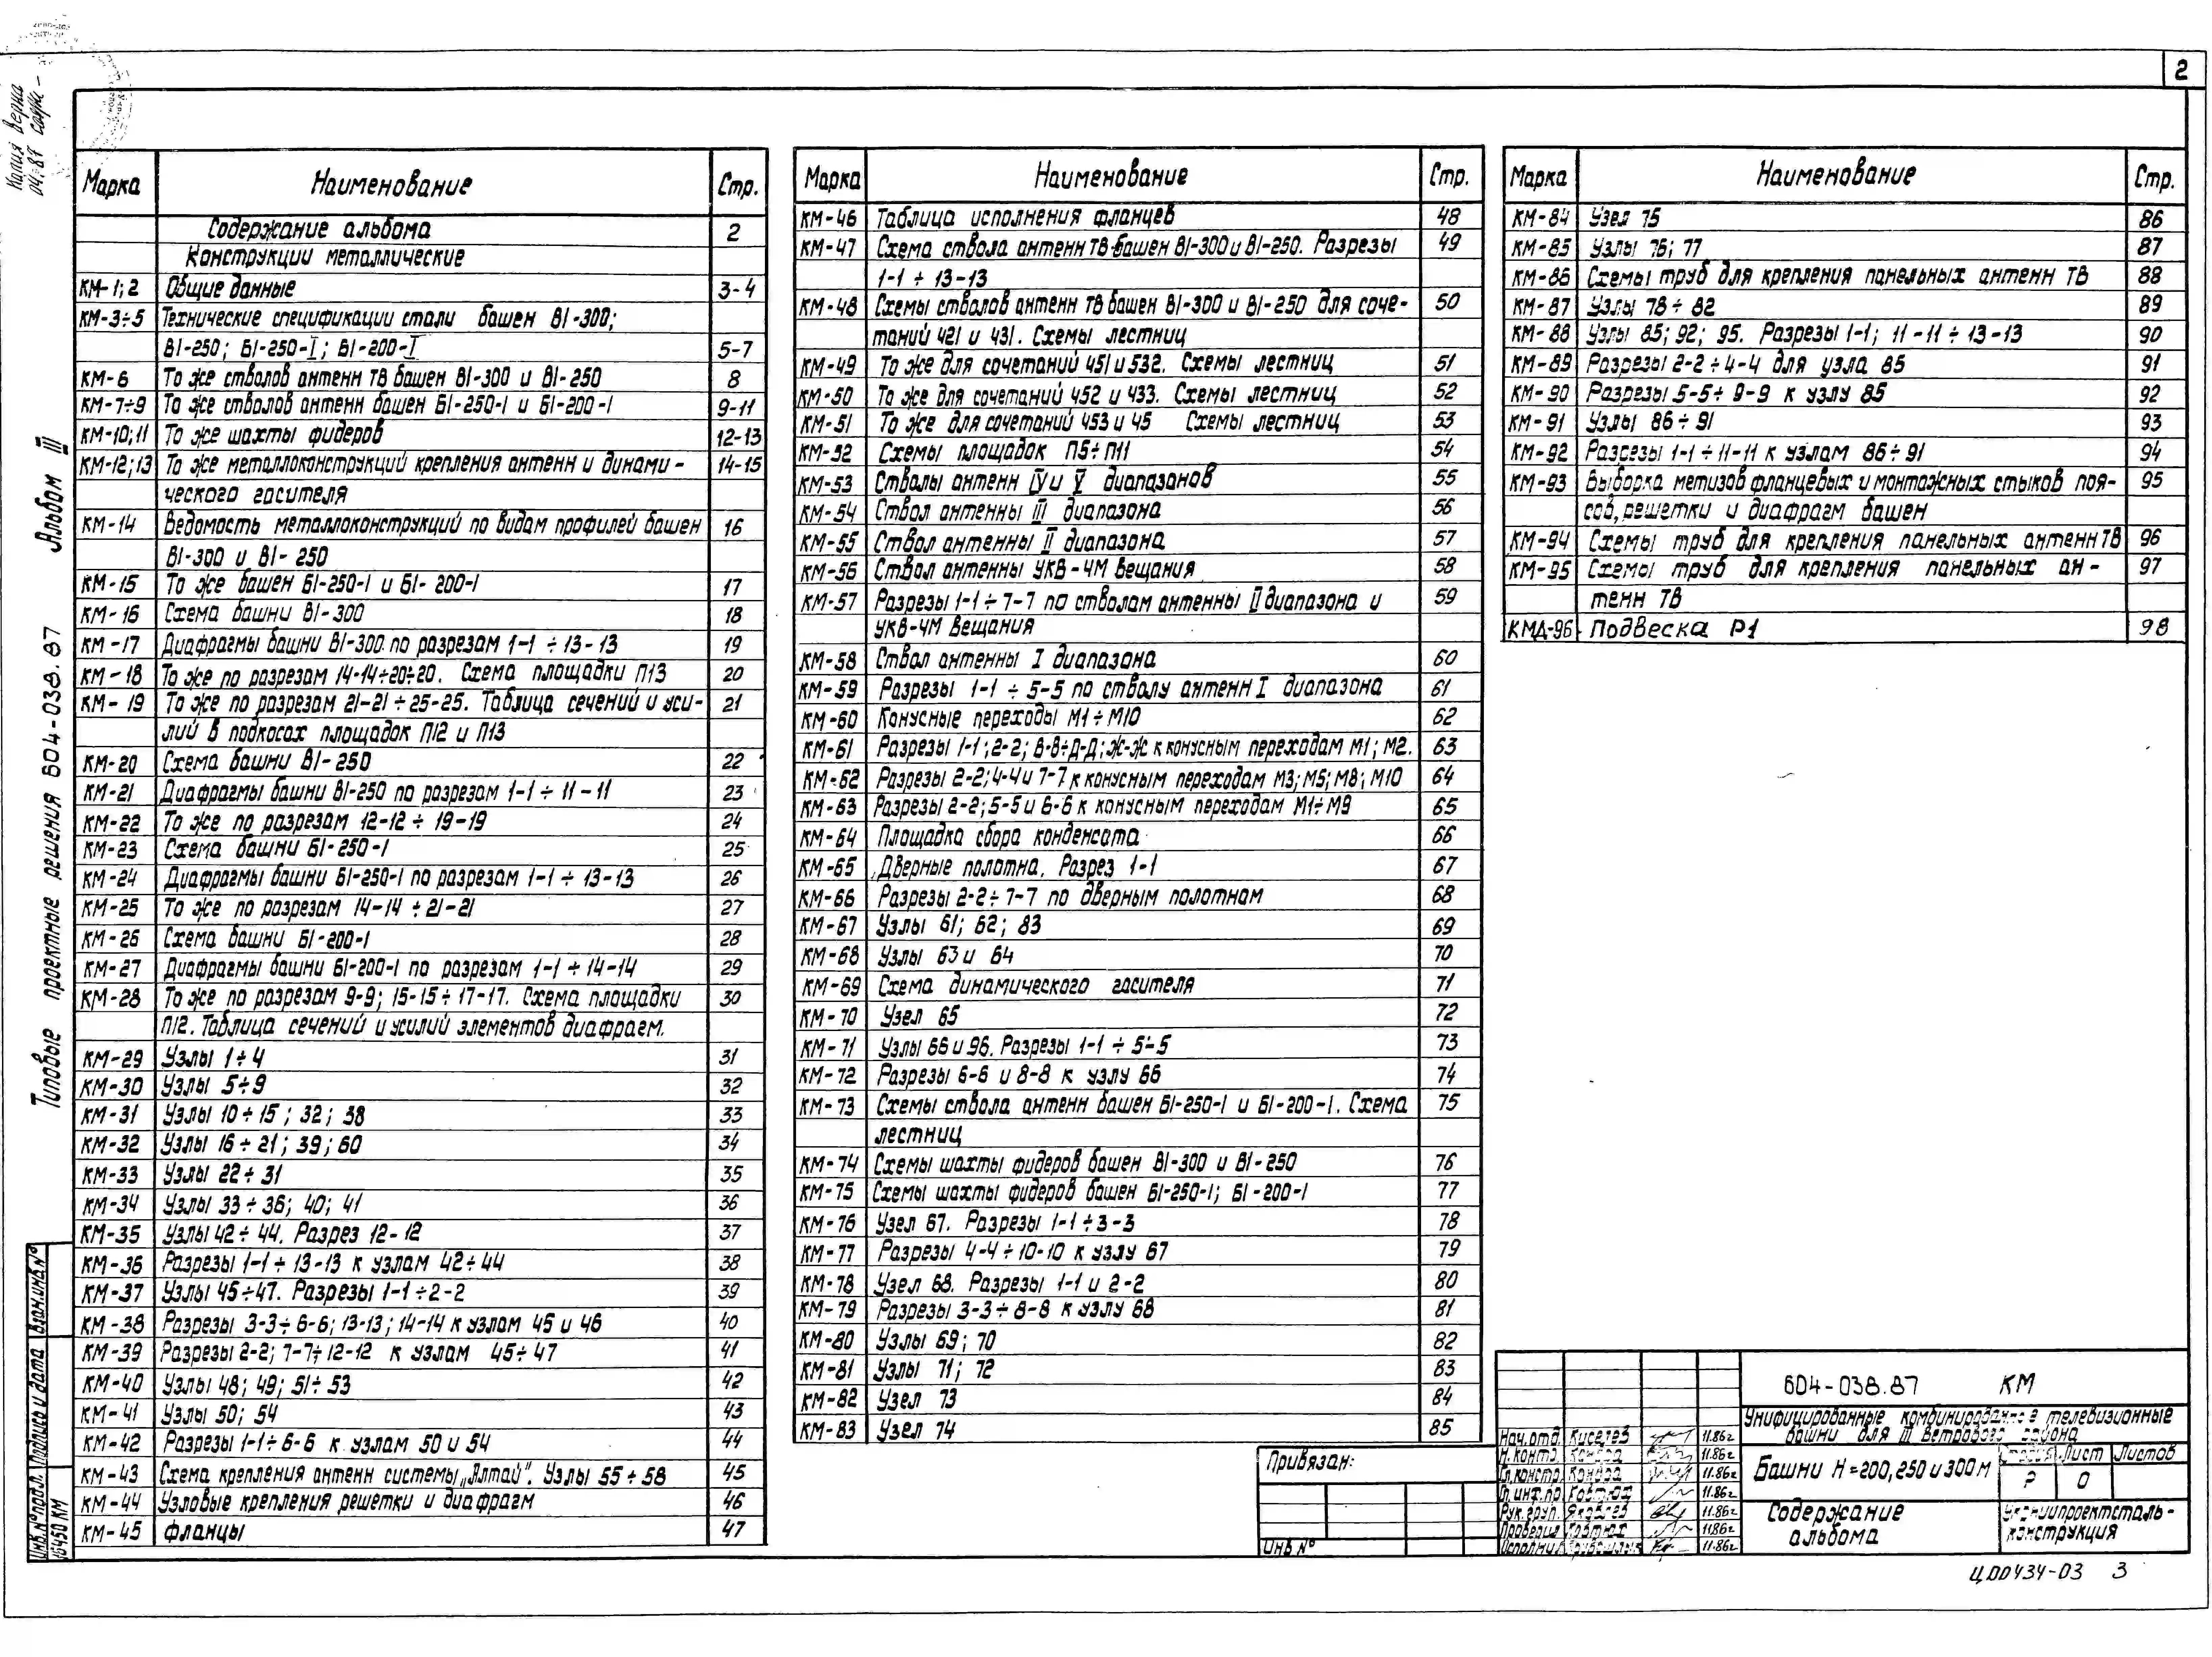 2
Копия верна
04.87
Альбом III
Типовые проектные решения 604-038.87
Марка Наименование Стр.
Содержание альбома 2
Конструкции металлические
КМ-1;2 Общие данные 3-4
КМ-3÷5 Технические спецификации стали башен В1-300;
В1-250; Б1-250-I; Б1-200-I 5-7
КМ-6 То же стволов антенн ТВ башен В1-300 и В1-250 8
КМ-7÷9 То же стволов антенн башен Б1-250-1 и Б1-200-1 9-11
КМ-10;11 То же шахты фидеров 12-13
КМ-12;13 То же металлоконструкций крепления антенн и динами- 14-15
ческого гасителя
КМ-14 Ведомость металлоконструкций по видам профилей башен 16
В1-300 и В1-250
КМ-15 То же башен Б1-250-1 и Б1-200-1 17
КМ-16 Схема башни В1-300 18
КМ-17 Диафрагмы башни В1-300 по разрезам 1-1 ÷ 13-13 19
КМ-18 То же по разрезам 14-14÷20÷20. Схема площадки П13 20
КМ-19 То же по разрезам 21-21 ÷ 25-25. Таблица сечений и уси- 21
лий в подкосах площадок П12 и П13
КМ-20 Схема башни В1-250 22
КМ-21 Диафрагмы башни В1-250 по разрезам 1-1 ÷ 11-11 23
КМ-22 То же по разрезам 12-12 ÷ 19-19 24
КМ-23 Схема башни Б1-250-1 25
КМ-24 Диафрагмы башни Б1-250-1 по разрезам 1-1 ÷ 13-13 26
КМ-25 То же по разрезам 14-14 ÷ 21-21 27
КМ-26 Схема башни Б1-200-1 28
КМ-27 Диафрагмы башни Б1-200-1 по разрезам 1-1 ÷ 14-14 29
КМ-28 То же по разрезам 9-9; 15-15÷17-17. Схема площадки 30
П12. Таблица сечений и усилий элементов диафрагм.
КМ-29 Узлы 1÷4 31
КМ-30 Узлы 5÷9 32
КМ-31 Узлы 10÷15; 32; 38 33
КМ-32 Узлы 16÷21; 39; 60 34
КМ-33 Узлы 22÷31 35
КМ-34 Узлы 33÷36; 40; 41 36
КМ-35 Узлы 42÷44. Разрез 12-12 37
КМ-36 Разрезы 1-1÷13-13 к узлам 42÷44 38
КМ-37 Узлы 45÷47. Разрезы 1-1÷2-2 39
КМ-38 Разрезы 3-3÷6-6; 13-13; 14-14 к узлам 45 и 46 40
КМ-39 Разрезы 2-2; 7-7÷12-12 к узлам 45÷47 41
КМ-40 Узлы 48; 49; 51÷53 42
КМ-41 Узлы 50; 54 43
КМ-42 Разрезы 1-1÷6-6 к узлам 50 и 54 44
КМ-43 Схема крепления антенн системы „Алтай". Узлы 55÷58 45
КМ-44 Узловые крепления решетки и диафрагм 46
КМ-45 Фланцы 47
Марка Наименование Стр.
КМ-46 Таблица исполнения фланцев 48
КМ-47 Схема ствола антенн ТВ башен В1-300 и В1-250. Разрезы 49
1-1 ÷ 13-13
КМ-48 Схемы стволов антенн ТВ башен В1-300 и В1-250 для соче- 50
таний 421 и 431. Схемы лестниц
КМ-49 То же для сочетаний 451 и 532. Схемы лестниц 51
КМ-50 То же для сочетаний 452 и 433. Схемы лестниц 52
КМ-51 То же для сочетаний 453 и 45 Схемы лестниц 53
КМ-52 Схемы площадок П5÷П11 54
КМ-53 Стволы антенн IV и V диапазонов 55
КМ-54 Ствол антенны III диапазона 56
КМ-55 Ствол антенны II диапазона 57
КМ-56 Ствол антенны УКВ-ЧМ вещания 58
КМ-57 Разрезы 1-1 ÷ 7-7 по стволам антенны II диапазона и 59
УКВ-ЧМ вещания
КМ-58 Ствол антенны I диапазона 60
КМ-59 Разрезы 1-1 ÷ 5-5 по стволу антенн I диапазона 61
КМ-60 Конусные переходы М1÷М10 62
КМ-61 Разрезы 1-1; 2-2; В-В÷Д-Д; Ж-Ж к конусным переходам М1; М2. 63
КМ-62 Разрезы 2-2; 4-4 и 7-7 к конусным переходам М3; М5; М8; М10 64
КМ-63 Разрезы 2-2; 5-5 и 6-6 к конусным переходам М1÷М9 65
КМ-64 Площадка сбора конденсата 66
КМ-65 Дверные полотна. Разрез 1-1 67
КМ-66 Разрезы 2-2÷7-7 по дверным полотнам 68
КМ-67 Узлы 61; 62; 83 69
КМ-68 Узлы 63 и 64 70
КМ-69 Схема динамического гасителя 71
КМ-70 Узел 65 72
КМ-71 Узлы 66 и 96. Разрезы 1-1 ÷ 5-5 73
КМ-72 Разрезы 6-6 и 8-8 к узлу 66 74
КМ-73 Схемы ствола антенн башен Б1-250-1 и Б1-200-1. Схема 75
лестниц
КМ-74 Схемы шахты фидеров башен В1-300 и В1-250 76
КМ-75 Схемы шахты фидеров башен Б1-250-1; Б1-200-1 77
КМ-76 Узел 67. Разрезы 1-1÷3-3 78
КМ-77 Разрезы 4-4÷10-10 к узлу 67 79
КМ-78 Узел 68. Разрезы 1-1 и 2-2 80
КМ-79 Разрезы 3-3÷8-8 к узлу 68 81
КМ-80 Узлы 69; 70 82
КМ-81 Узлы 71; 72 83
КМ-82 Узел 73 84
КМ-83 Узел 74 85
Марка Наименование Стр.
КМ-84 Узел 75 86
КМ-85 Узлы 76; 77 87
КМ-86 Схемы труб для крепления панельных антенн ТВ 88
КМ-87 Узлы 78÷82 89
КМ-88 Узлы 85; 92; 95. Разрезы 1-1; 11-11 ÷ 13-13 90
КМ-89 Разрезы 2-2÷4-4 для узла 85 91
КМ-90 Разрезы 5-5÷9-9 к узлу 85 92
КМ-91 Узлы 86÷91 93
КМ-92 Разрезы 1-1÷11-11 к узлам 86÷91 94
КМ-93 Выборка метизов фланцевых и монтажных стыков поя- 95
сов, решетки и диафрагм башен
КМ-94 Схемы труб для крепления панельных антенн ТВ 96
КМ-95 Схемы труб для крепления панельных ан- 97
тенн ТВ
КМД-96 Подвеска Р1 98
Инв.№ подл. Подпись и дата Взам.инв.№
16450 КМ
Привязан:
Инв №
Нач.отд. Киселев 11.86г
Н.контр. 11.86г
Гл.констр. 11.86г
Гл.инж.пр 11.86г
Рук.груп. Яковлев 11.86г
Проверил 11.86г
Исполнил 11.86г
604-038.87 КМ
Унифицированные комбинированные телевизионные
башни для III ветрового района
Башни Н=200, 250 и 300м
Стадия Лист Листов
Р 0
Содержание
альбома
Укрниипроектсталь-
конструкция
Ц00434-03 3